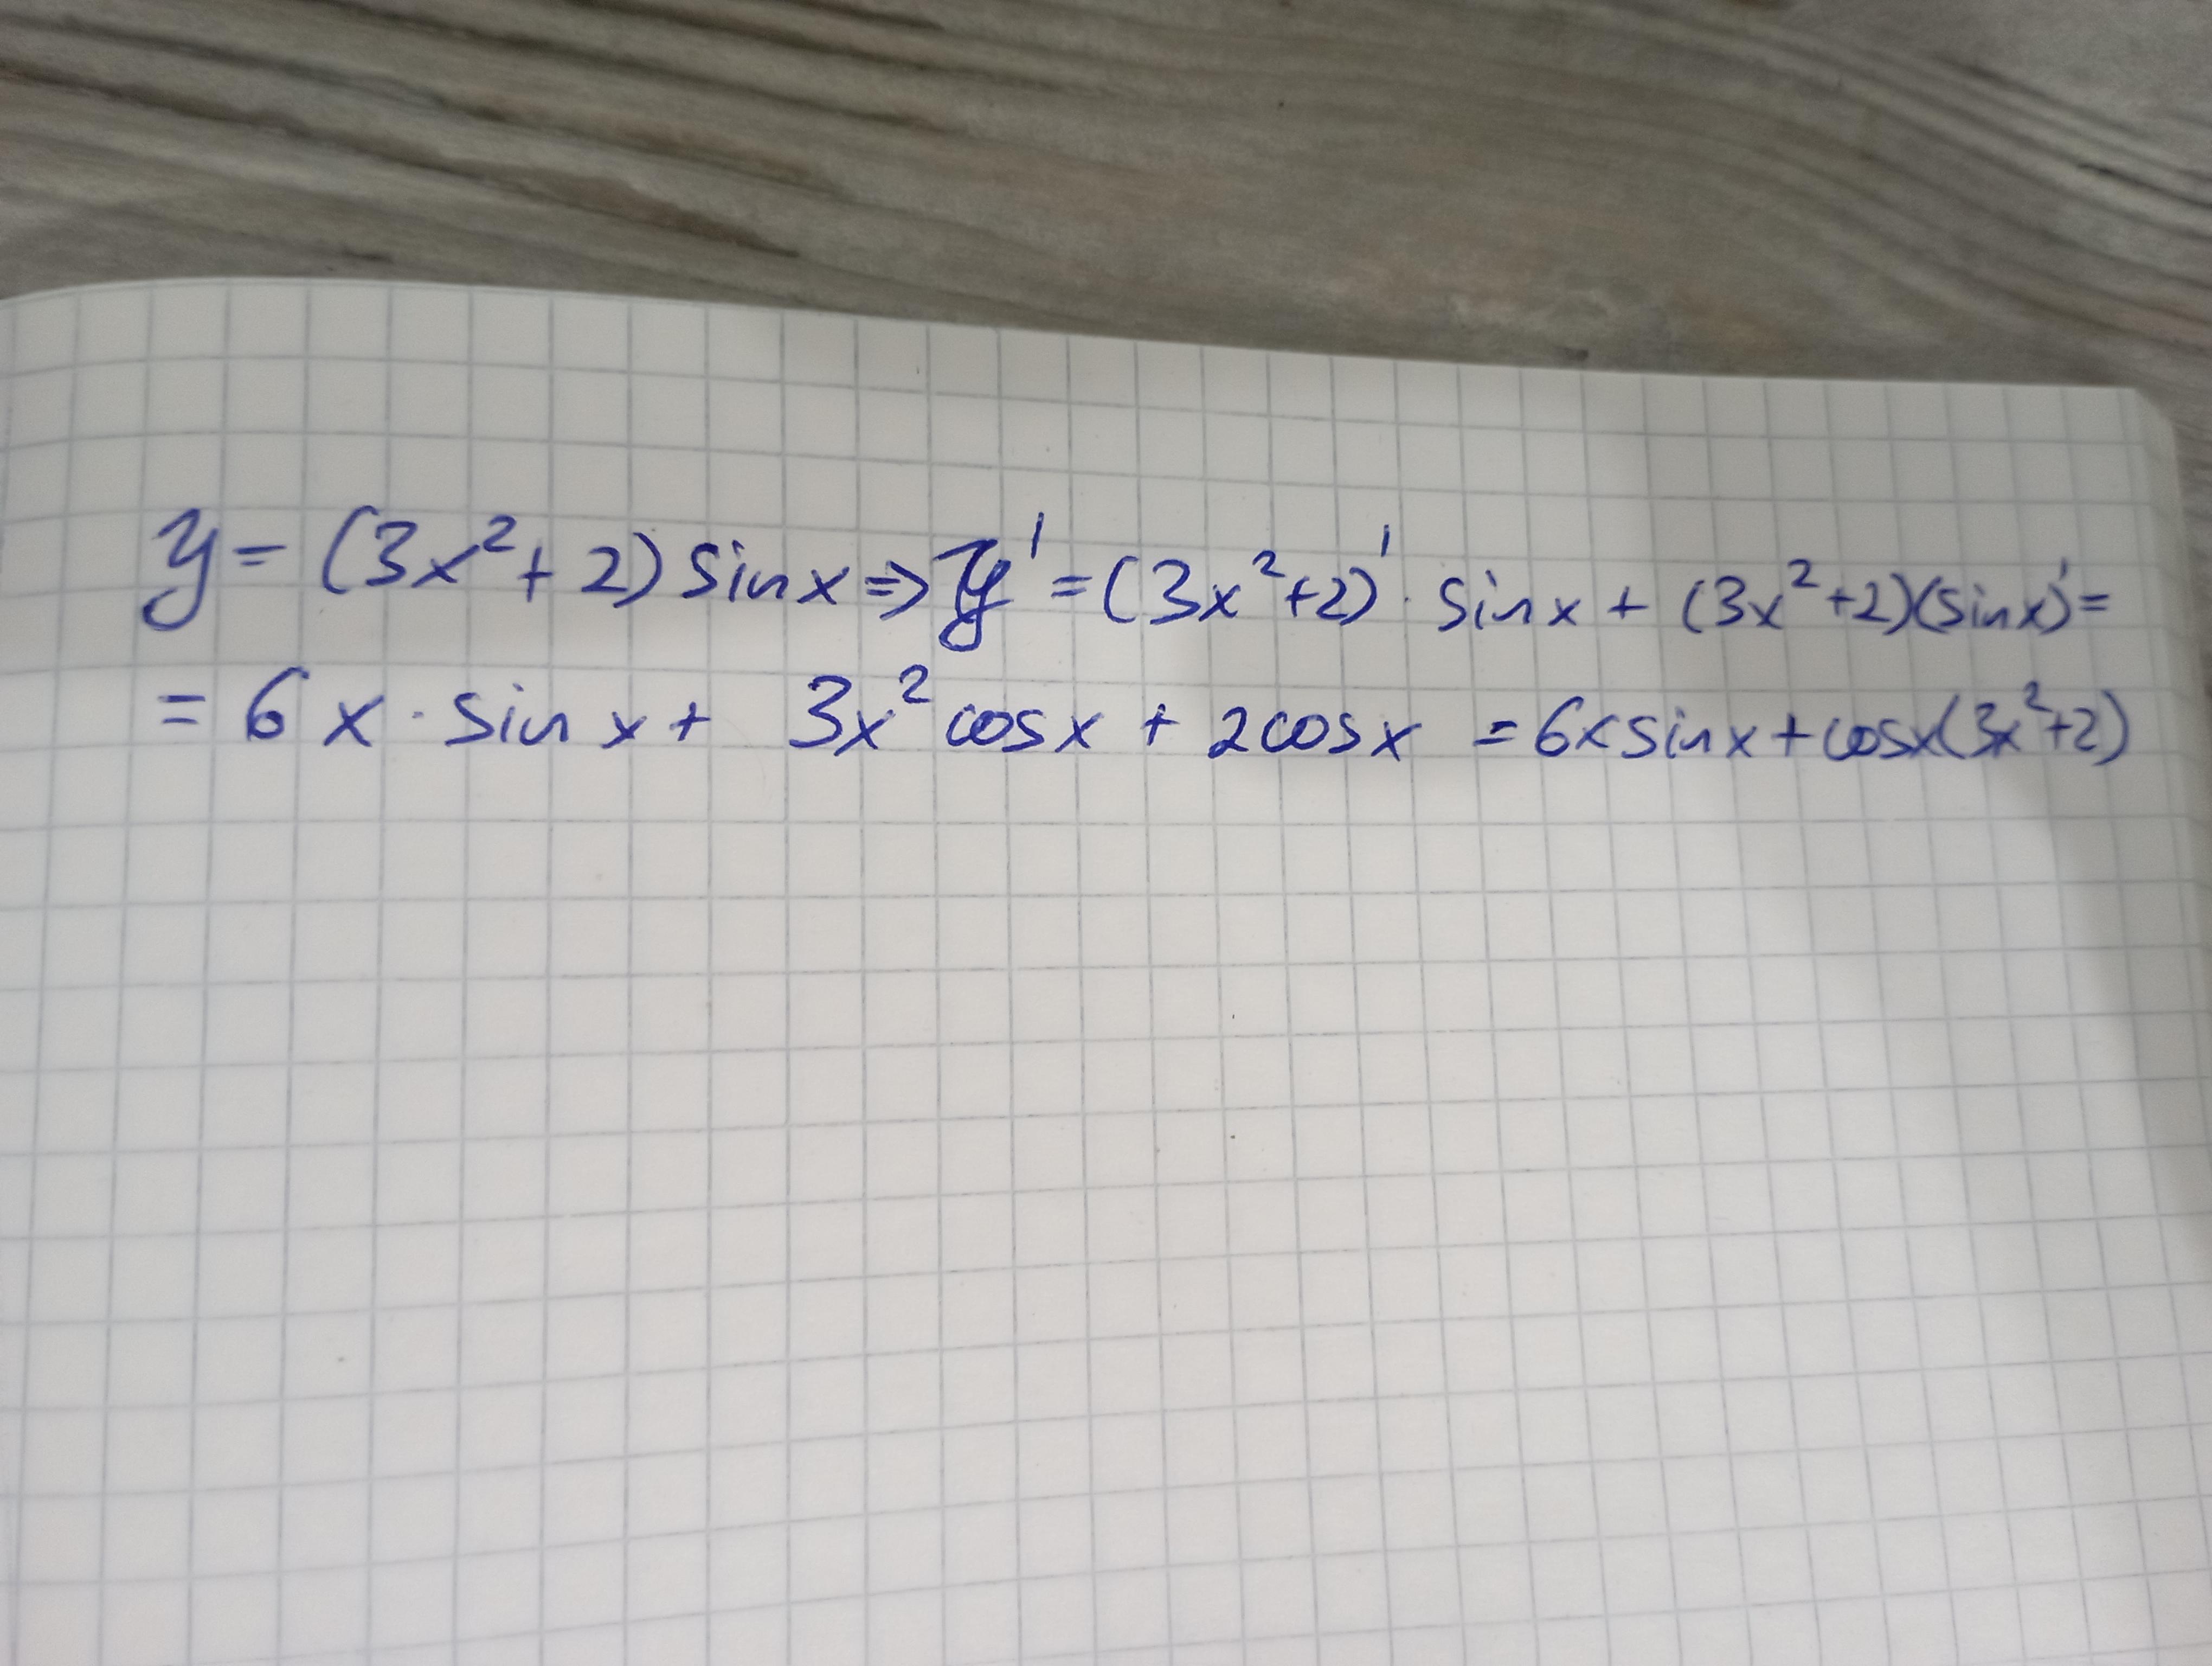 y = (3x² + 2) sin x ⇒ y' = (3x² + 2)' · sin x + (3x² + 2)(sin x)' =
= 6x · sin x + 3x² cos x + 2 cos x = 6x sin x + cos x (3x² + 2)